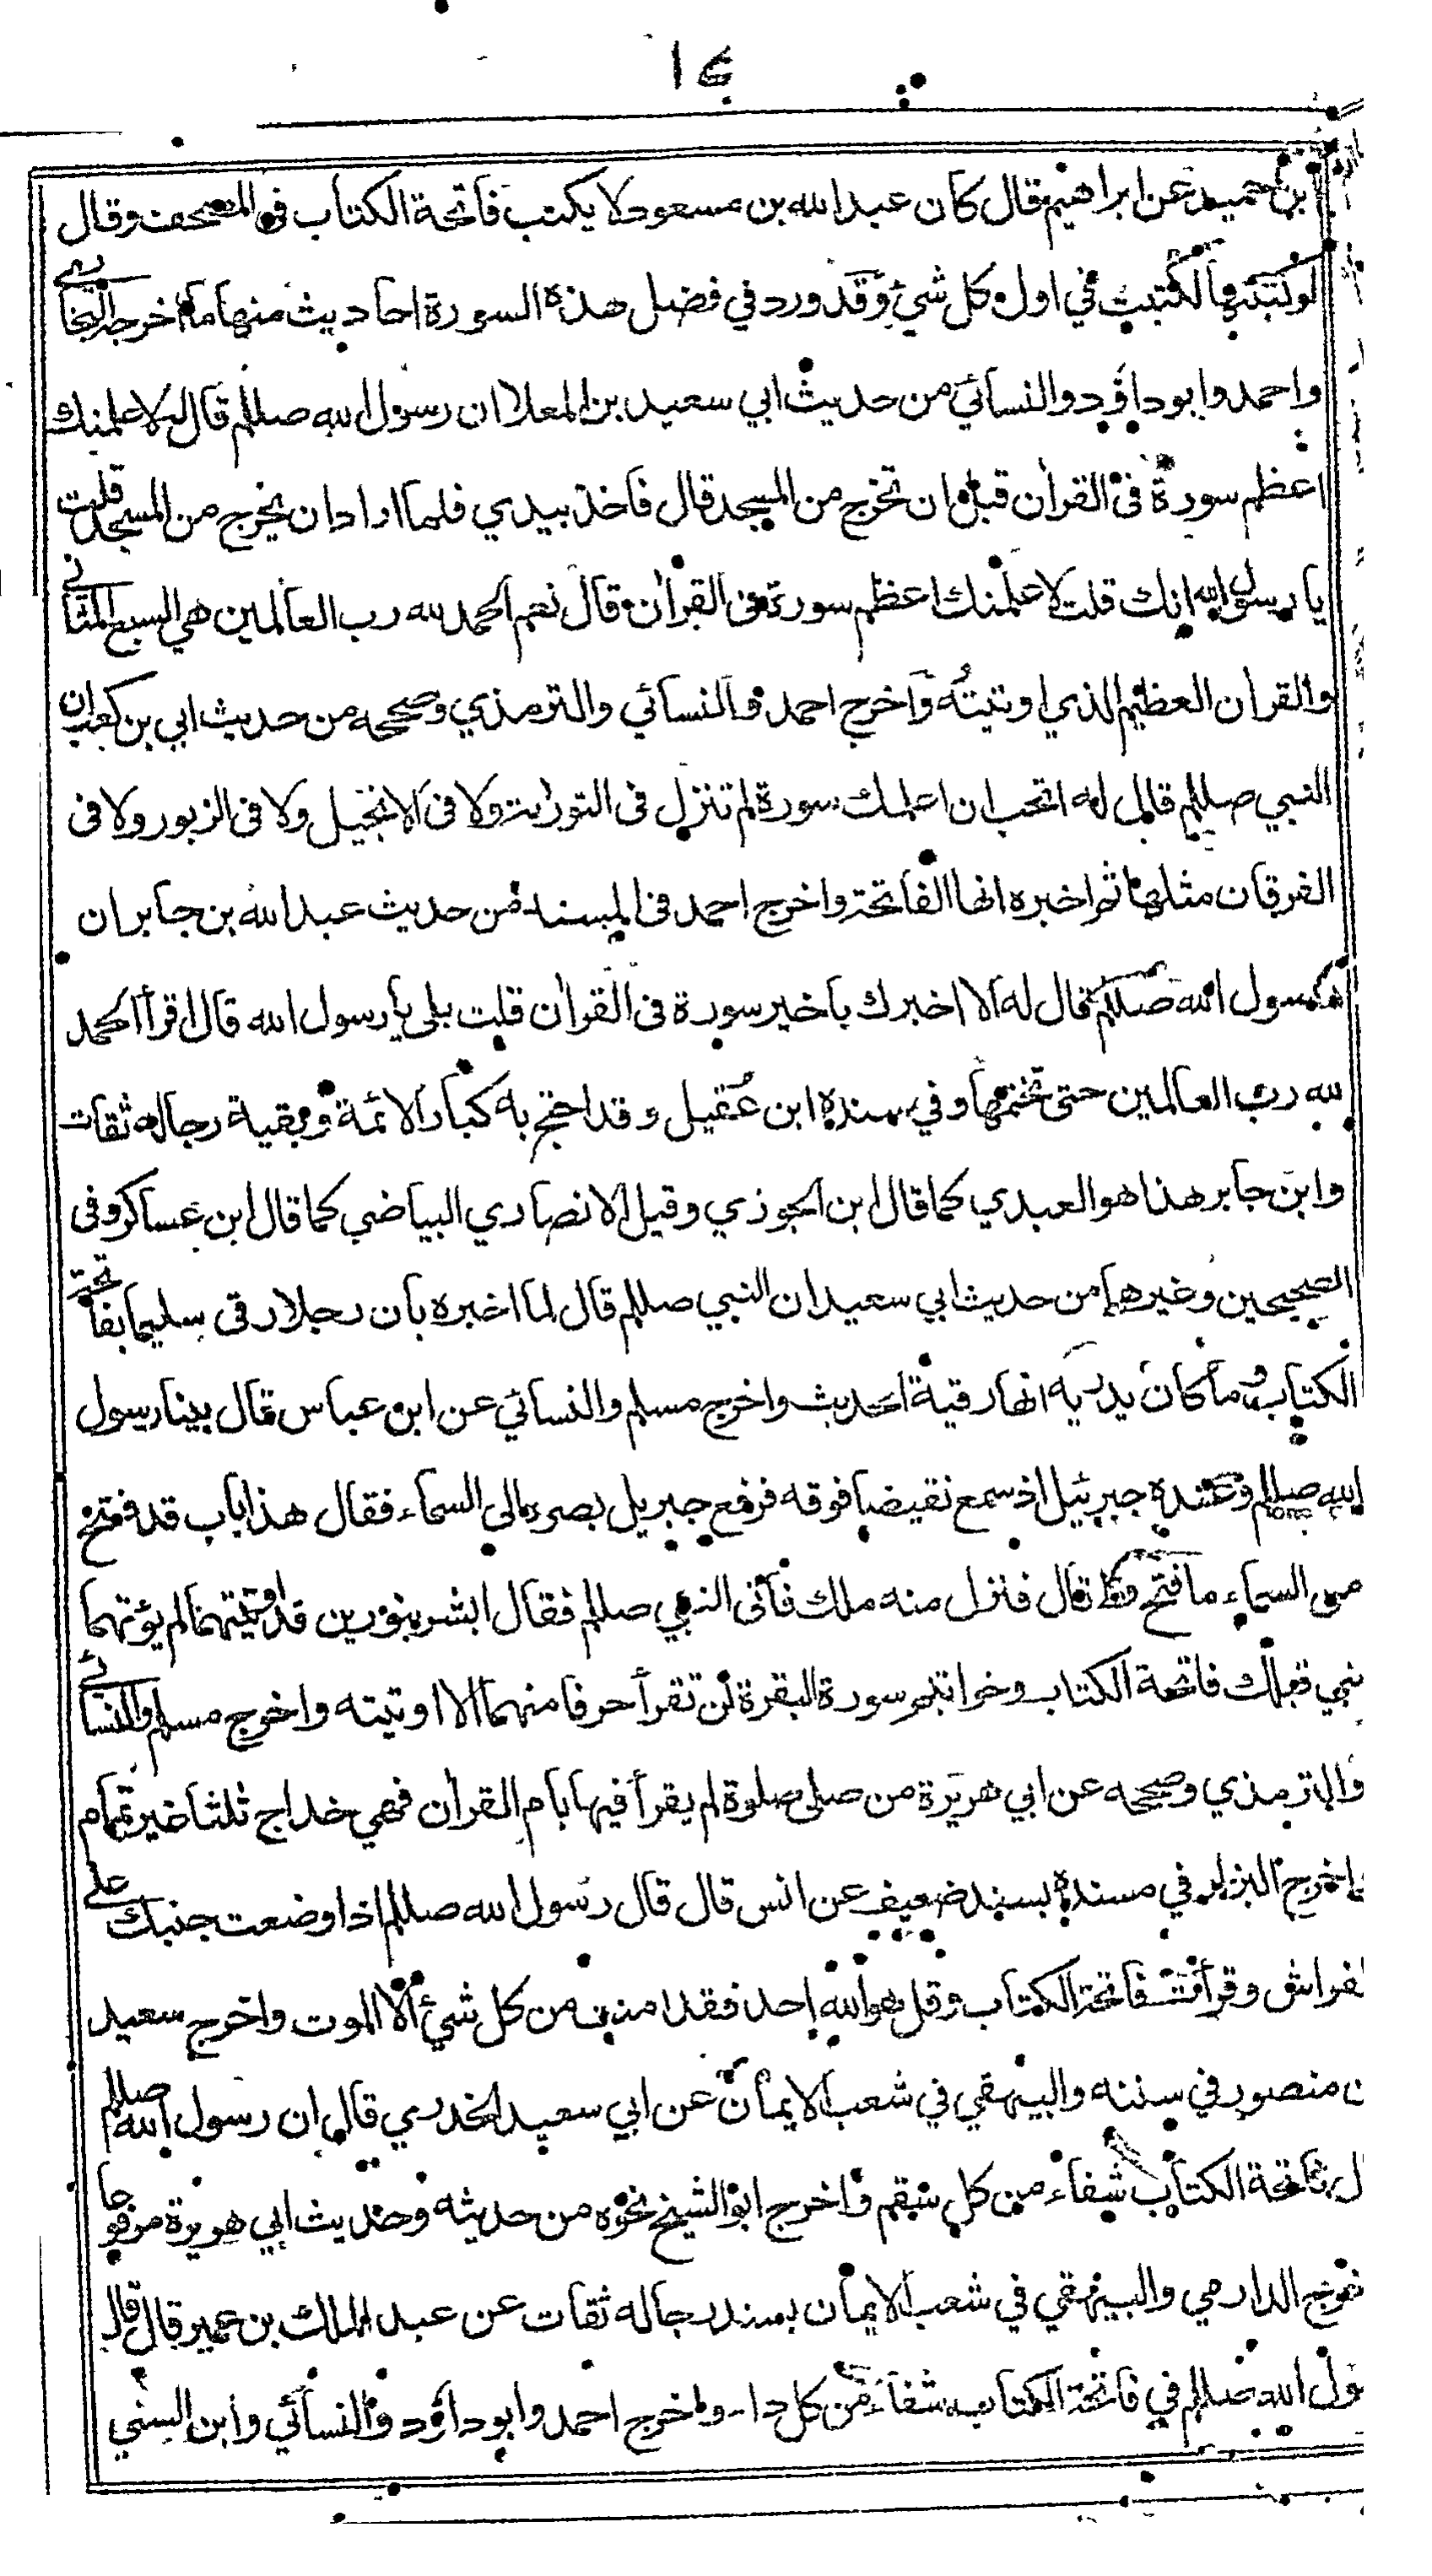 ١٤
بن حميد عن ابراهيم قال كان عبد الله بن مسعود لا يكتب فاتحة الكتاب في المصحف وقال
لو كتبتها لكتبت في اول كل شئ وقد ورد في فضل هذه السورة احاديث منها ما اخرجه البخاري
واحمد وابو داؤد والنسائي من حديث ابي سعيد بن المعلا ان رسول الله صللم قال له لاعلمنك
اعظم سورة فى القران قبل ان تخرج من المسجد قال فاخذ بيدي فلما اراد ان يخرج من المسجد قلت
يا رسول الله انك قلت لاعلمنك اعظم سورة فى القران قال نعم الحمد لله رب العالمين هي السبع المثاني
والقران العظيم الذي اوتيته واخرج احمد والنسائي والترمذي وصححه من حديث ابي بن كعب ان
النبي صللم قال له اتحب ان اعلمك سورة لم تنزل فى التورات ولا فى الانجيل ولا فى الزبور ولا فى
الفرقان مثلها ثم اخبره انها الفاتحة واخرج احمد فى المسند من حديث عبد الله بن جابر ان
رسول الله صللم قال له الا اخبرك باخير سورة فى القران قلت بلى يا رسول الله قال اقرأ الحمد
لله رب العالمين حتى تختمها وفي سنده ابن عقيل وقد احتج به كبار الائمة وبقية رجاله ثقات
وابن جابر هذا هو العبدي كما قال ابن الجوزي وقيل الانصاري البياضي كما قال ابن عساكر وفى
الصحيحين وغيرهما من حديث ابي سعيد ان النبي صللم قال لما اخبره بان رجلا رقى سليما بفاتحة
الكتاب وما كان يدريه انها رقية الحديث واخرج مسلم والنسائي عن ابن عباس قال بينا رسول
الله صللم وعنده جبرئيل اذ سمع نقيضا فوقه فرفع جبريل بصره الى السماء فقال هذا باب قد فتح
من السماء ما فتح قط قال فنزل منه ملك فأتى النبي صللم فقال ابشر بنورين قد اوتيتهما لم يؤتهما
نبي قبلك فاتحة الكتاب وخواتيم سورة البقرة لن تقرأ حرفا منهما الا اوتيته واخرج مسلم والنسائي
والترمذي وصححه عن ابي هريرة من صلى صلوة لم يقرأ فيها بام القران فهي خداج ثلثا غير تمام
واخرج البزار في مسنده بسند ضعيف عن انس قال قال رسول الله صللم اذا وضعت جنبك على
لفراش وقرأت فاتحة الكتاب وقل هو الله احد فقد امنت من كل شئ الا الموت واخرج سعيد
ن منصور في سننه والبيهقي في شعب الايمان عن ابي سعيد الخدري قال ان رسول الله صللم
ل فاتحة الكتاب شفاء من كل سقم واخرج ابو الشيخ نحوه من حديثه وحديث ابي هريرة مرفوعا
خرج الدارمي والبيهقي في شعب الايمان بسند رجاله ثقات عن عبد الملك بن عمير قال قال
سول الله صللم في فاتحة الكتاب شفاء من كل داء واخرج احمد وابو داؤد والنسائي وابن السني